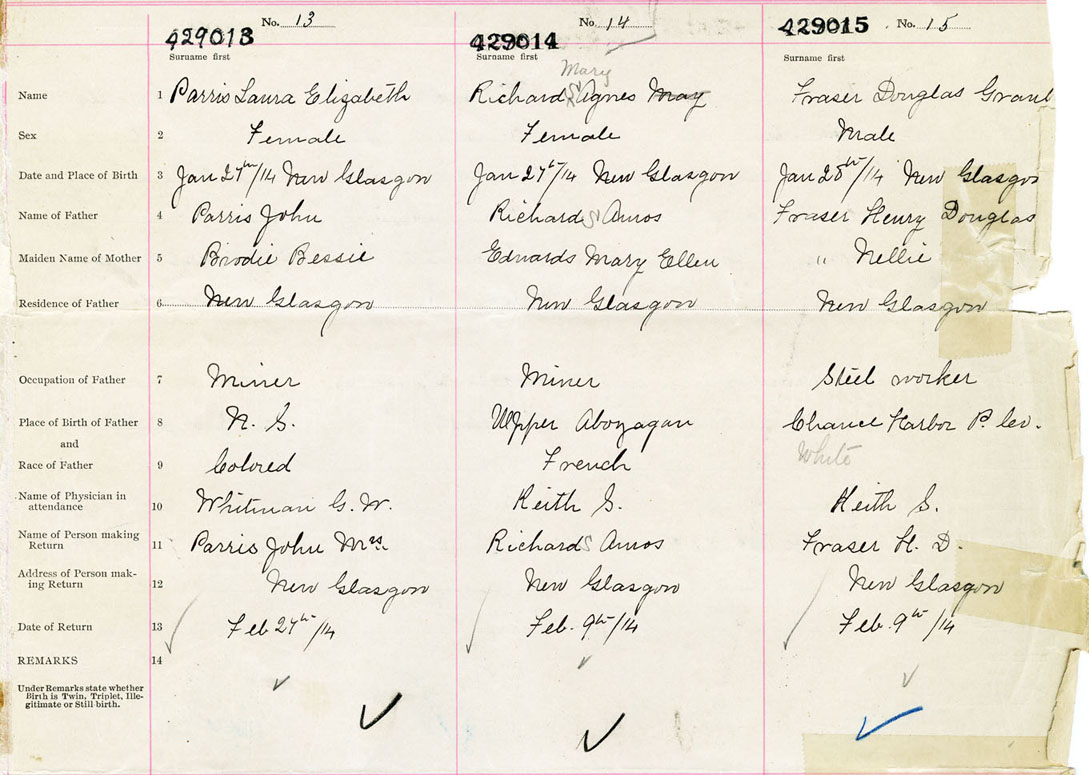 No. 13 No. 14 No. 15
429013 429014 429015
Surname first Surname first Surname first
Mary
Name 1 Parris Laura Elizabeth Richard S Agnes May Fraser Douglas Grant
Sex 2 Female Female Male
Date and Place of Birth 3 Jan 27th/14 New Glasgow Jan 27th/14 New Glasgow Jan 28th/14 New Glasgow
Name of Father 4 Parris John Richard S Amos Fraser Henry Douglas
Maiden Name of Mother 5 Brodie Bessie Edwards Mary Ellen " Nellie
Residence of Father 6 New Glasgow New Glasgow New Glasgow
Occupation of Father 7 Miner Miner Steel worker
Place of Birth of Father 8 N. S. Upper Chance Harbor P.
and
Race of Father 9 Colored French White
Name of Physician in
attendance 10 Whitman G. W. Keith S. Keith S.
Name of Person making
Return 11 Parris John Mrs. Richard S Amos Fraser H. D.
Address of Person mak-
ing Return 12 New Glasgow New Glasgow New Glasgow
Date of Return 13 Feb 27th/14 Feb. 9th/14 Feb. 9th/14
REMARKS 14
Under Remarks state whether
Birth is Twin, Triplet, Ille-
gitimate or Still birth.